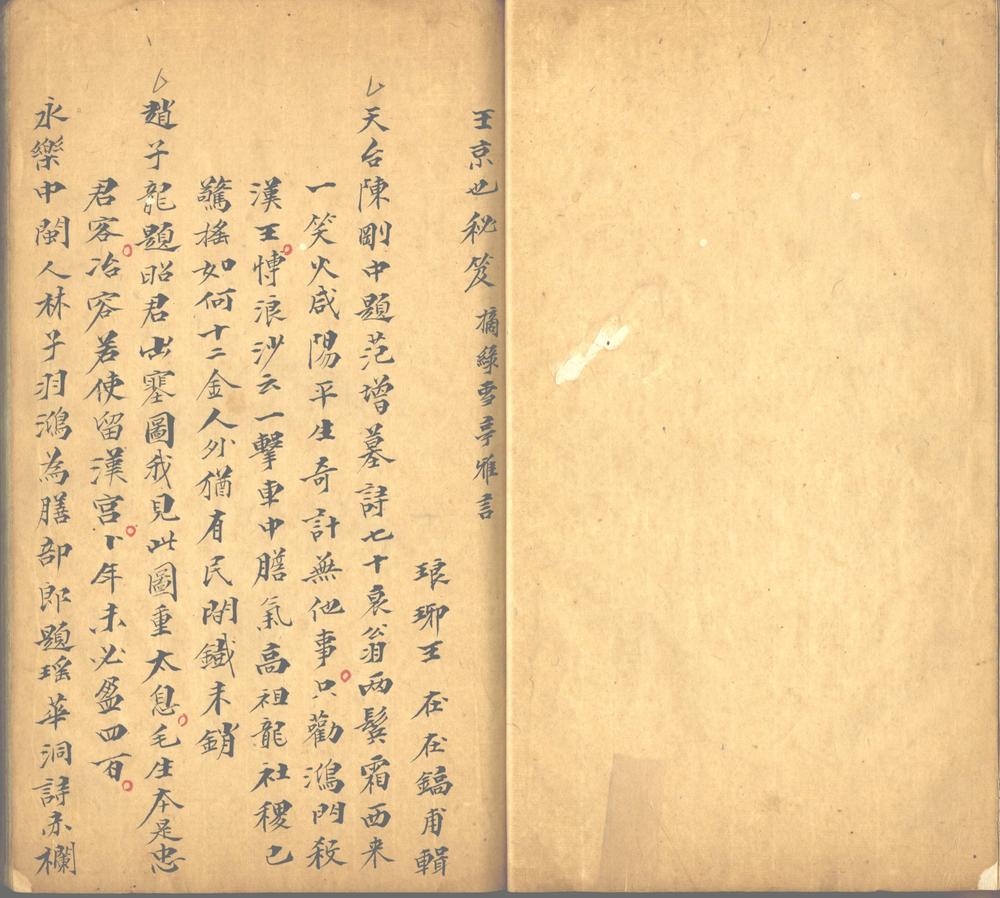 王京也秘笈 摘綠雪亭雅言
琅琊王 在在鎬甫輯
天台陳剛中題范增墓詩七十衰翁兩鬓霜西来
一笑火咸陽平生奇計無他事只勸鴻門殺
漢王慱浪沙云一擊車中膽氣高祖龍社稷已
驚搖如何十二金人外猶有民間鐡未銷
趙子龍題昭君出塞圖我見此圖重太息毛生本是忠
君客冶容若使留漢宫卜年未必盈四百
永樂中閩人林子羽鴻為膳部郎題瑶華洞詩赤欄